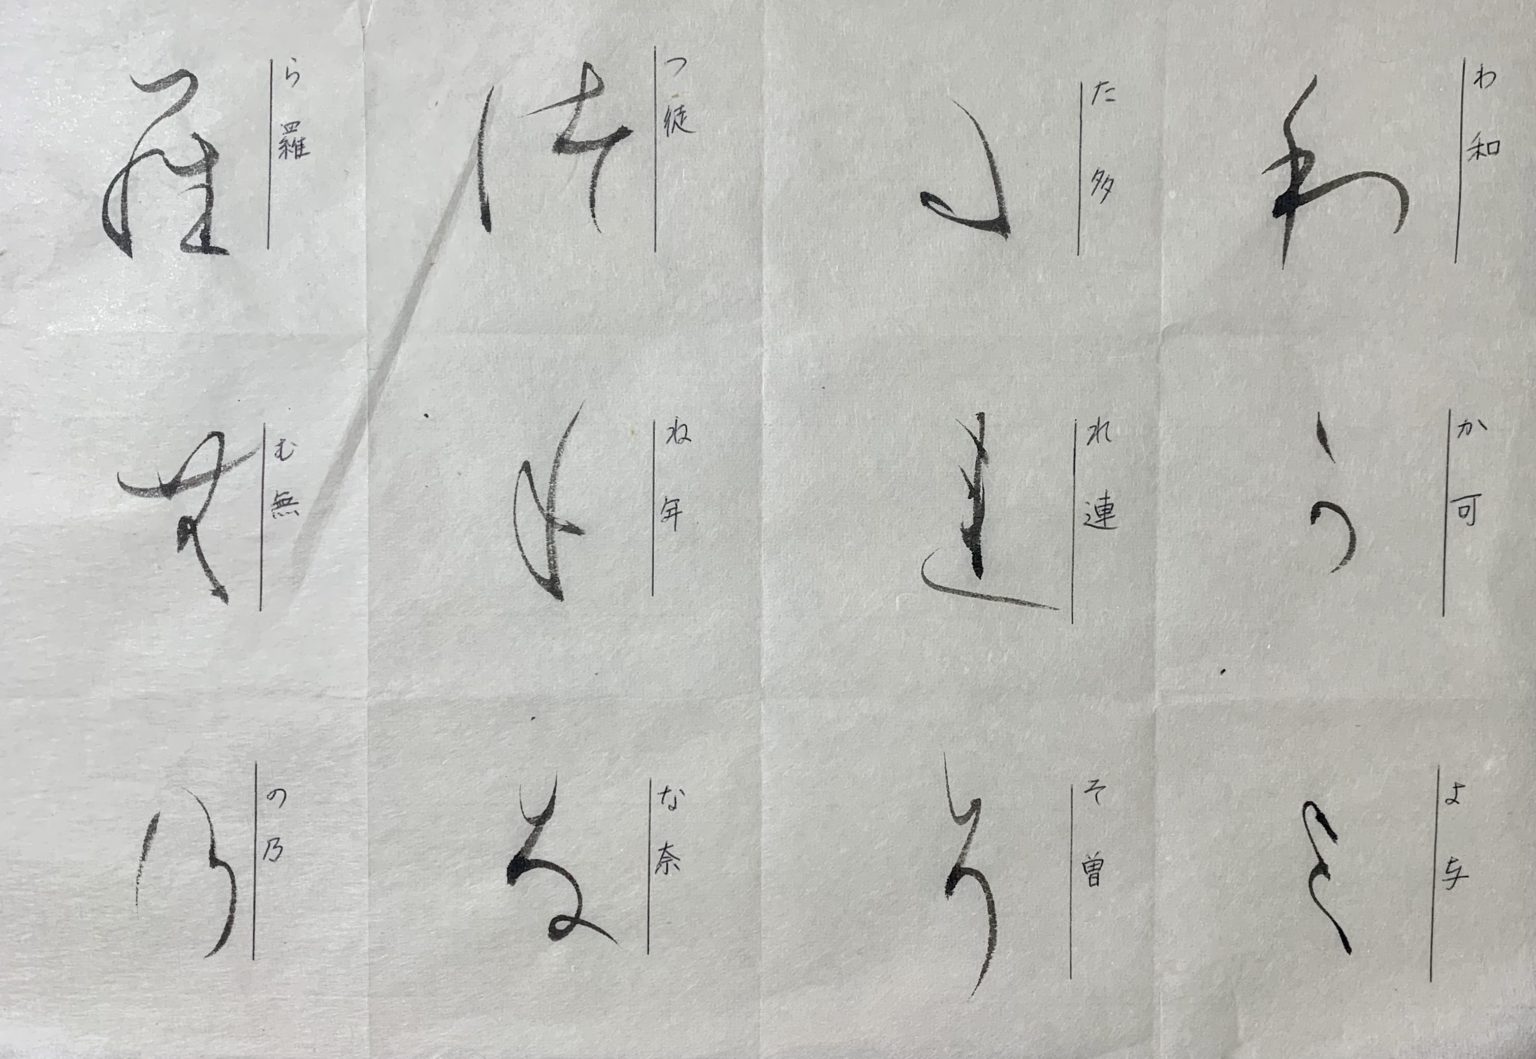 わ 和
か 可
よ 与
た 多
れ 連
そ 曽
つ 徒
ね 年
な 奈
ら 羅
む 無
の 乃